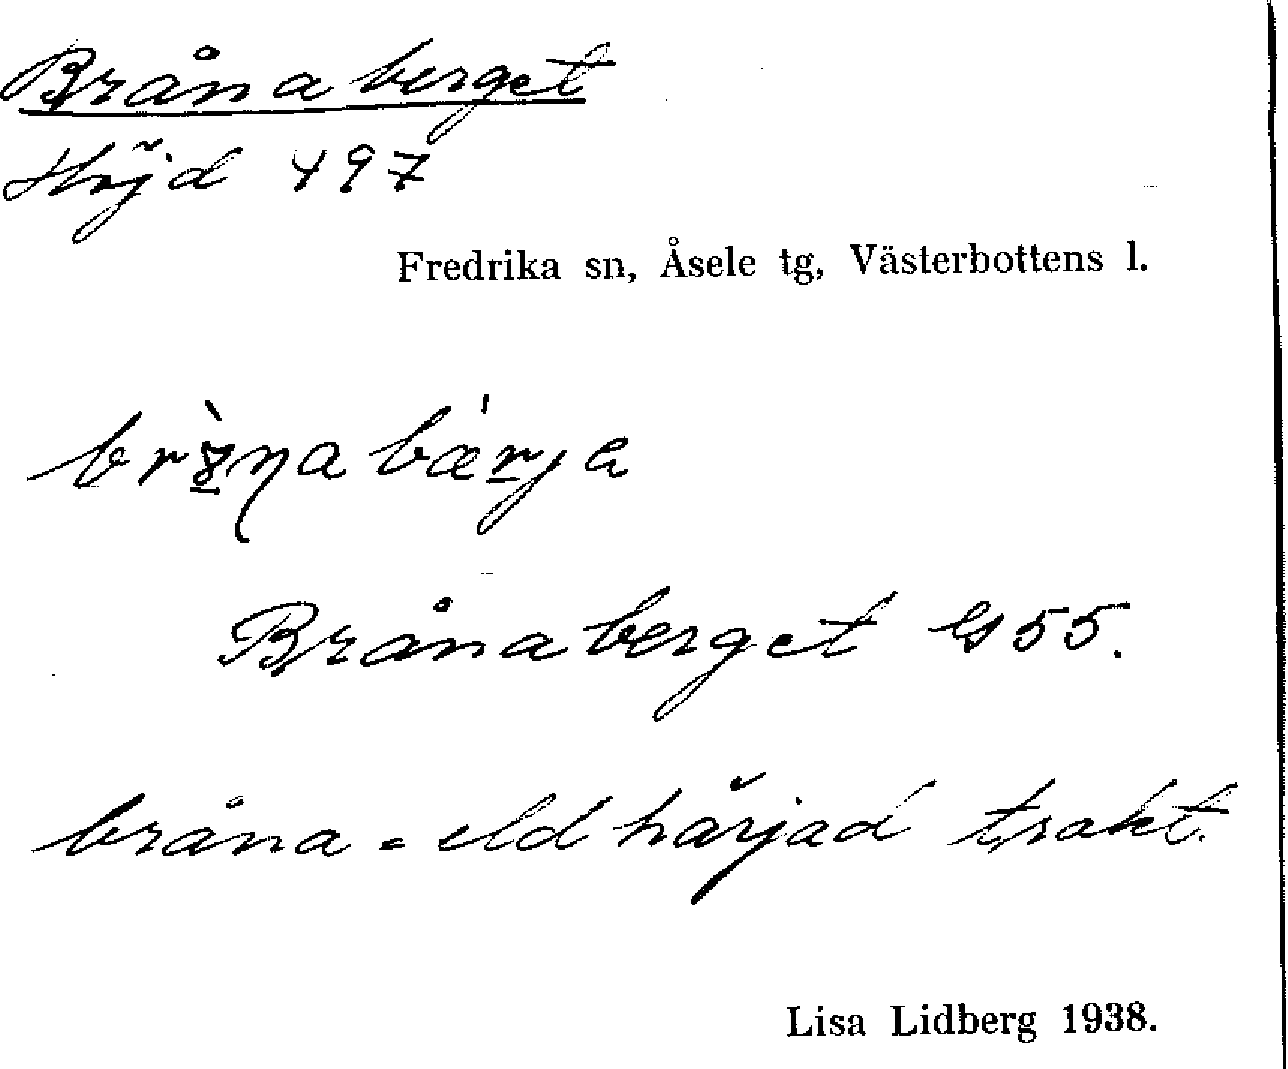 Brånaberget
Höjd 497
Fredrika sn, Åsele tg, Västerbottens l.
Brånaberget GS 55.
bråna = eldhärjad trakt.
Lisa Lidberg 1938.